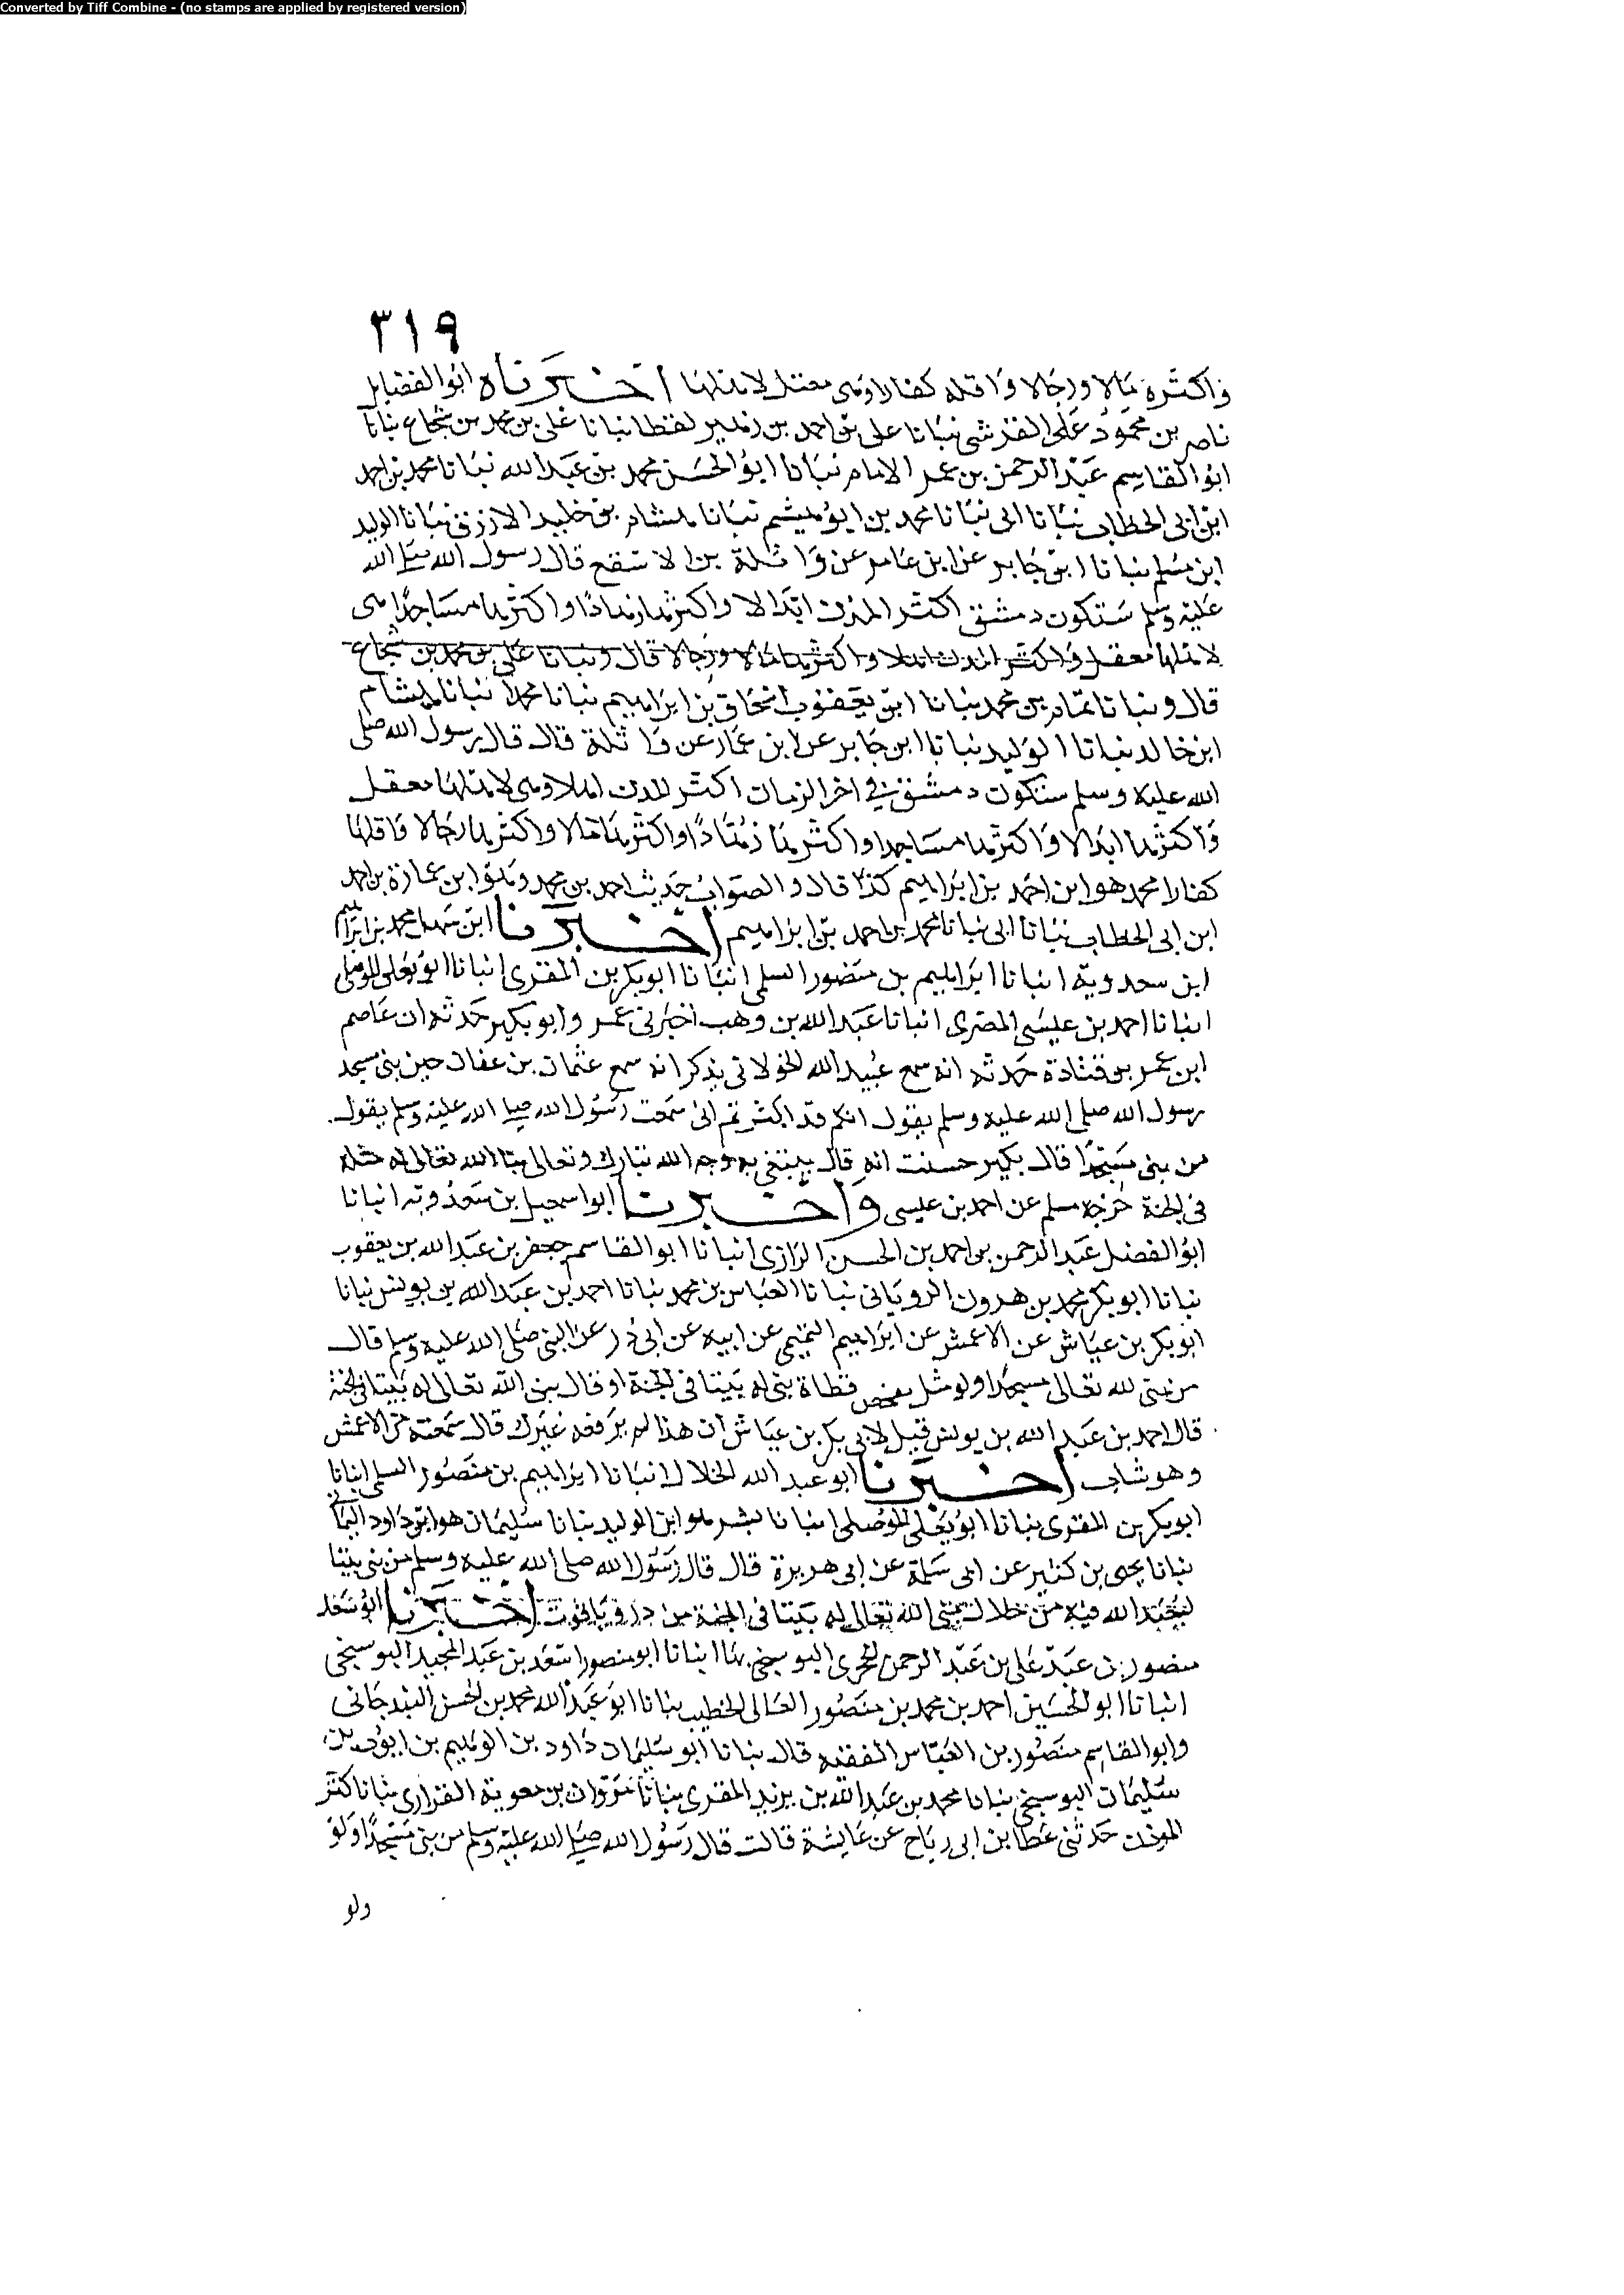 Converted by Tiff Combine - (no stamps are applied by registered version)
٣١٩
واكثره مالا ورجالا واقله كفارا وهى معقل لاهلها اخبرناه ابو الفضايل
ناصر بن محمود على القرشى نبانا على بن احمد بن زهير لفظا نبانا على بن محمد بن شجاع نبانا
ابو القاسم عبد الرحمن بن عمر الامام نبانا ابو الحسن محمد بن عبد الله نبانا محمد بن احمد
ابن ابى الخطاب نبانا ابى نبانا محمد بن ابو هيثم نبانا هشام بن خليد الازرق نبانا الوليد
ابن مسلم نبانا ابن جابر عن ابن عامر عن واثلة بن الاسقع قال رسول الله صلى الله
عليه وسلم ستكون دمشق اكثر المدن ابدالا واكثرها زهادا واكثرها مساجدا وهى
لاهلها معقل واكثر المدن اهلا واكثرها مالا ورجالا قال ونبانا على بن محمد بن شجاع
قال ونبانا تمام بن محمد نبانا ابن يعقوب اسحاق بن ابراهيم نبانا محمد نبانا هشام
ابن خالد نبانا الوليد نبانا ابن جابر عن ابن عمار عن واثلة قال قال رسول الله صلى
الله عليه وسلم ستكون دمشق فى اخر الزمان اكثر المدن اهلا وهى لاهلها معقل
واكثرها ابدالا واكثرها مساجدا واكثرها زهادا واكثرها مالا واكثرها رجالا واقلها
كفارا محمد هو ابن احمد بن ابراهيم كذا قال والصواب حديث احمد بن محمد وهو ابن عمارة بن احمد
ابن ابى الخطاب نبانا ابى نبانا محمد بن احمد بن ابراهيم اخبرنا ابن سهل محمد بن ابراهيم
ابن سعدوية انبانا ابراهيم بن منصور السلمى انبانا ابو بكر بن المقرى انبانا ابو يعلى الموصلى
انبانا احمد بن عيسى المصرى انبانا عبد الله بن وهب اخبرنى عمر وابو بكير حدثه ان عاصم
ابن عمر بن قتادة حدثه انه سمع عبيد الله الخولانى يذكر انه سمع عثمان بن عفان حين بنى مسجد
رسول الله صلى الله عليه وسلم يقول انكم قد اكثرتم انى سمعت رسول الله صلى الله عليه وسلم يقول
من بنى مسجدا قال بكير حسبت انه قال يبتغى به وجه الله تبارك وتعالى بنا الله تعالى له مثله
فى الجنة خرجه مسلم عن احمد بن عيسى واخبرنا ابو اسمعيل بن سعدويه انبانا
ابو الفضل عبد الرحمن بن احمد بن الحسن الرازى انبانا ابو القاسم جعفر بن عبد الله بن يعقوب
نبانا ابو بكر محمد بن هرون الرويانى نبانا العباس بن محمد نبانا احمد بن عبد الله بن يونس نبانا
ابو بكر بن عياش عن الاعمش عن ابراهيم التيمى عن ابيه عن ابى ذر عن النبى صلى الله عليه وسلم قال
من بنى لله تعالى مسجدا ولو مثل مفحص قطاة بنى له بيتا فى الجنة او قال بنى الله تعالى له بيتا فى الجنة
قال احمد بن عبد الله بن يونس قيل لابى بكر بن عياش ان هذا لم يرفعه غيرك قال سمعته من الاعمش
وهو شاب اخبرنا ابو عبد الله الخلال انبانا ابراهيم بن منصور السلمى انبانا
ابو بكر بن المقرى نبانا ابو يعلى الموصلى انبانا بشر هو ابن الوليد نبانا سليمان هو ابن داود اليمانى
نبانا يحيى بن كثير عن ابى سلمة عن ابى هريرة قال قال رسول الله صلى الله عليه وسلم من بنى بيتا
ليعبد الله فيه من حلال بنى الله تعالى له بيتا فى الجنة من در وياقوت اخبرنا ابو سعد
منصور بن عبد على بن عبد الرحمن الحجرى البوسنجى بها انبانا ابو منصور اسعد بن عبد المجيد البوسنجى
انبانا ابو الحسين احمد بن محمد بن منصور العالى الخطيب نبانا ابو عبد الله محمد بن الحسن البندجانى
وابو القاسم منصور بن العباس الفقيه قال نبانا ابو سليمان داود بن الوسيم بن ايوب بن
سليمان البوسنجى نبانا محمد بن عبد الله بن يزيد المقرى نبانا مروان بن معوية الفزارى نبانا كثير
الموذن حدثنى عطا بن ابى رباح عن عايشة قالت قال رسول الله صلى الله عليه وسلم من بنى مسجدا ولو
ولو